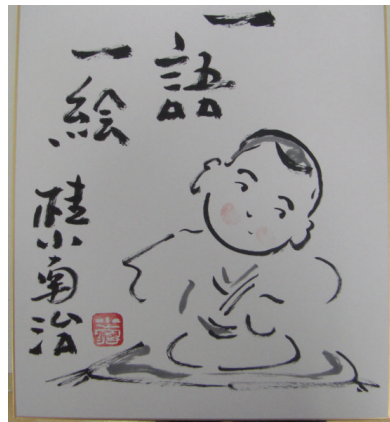 一語
一絵
桂小南治